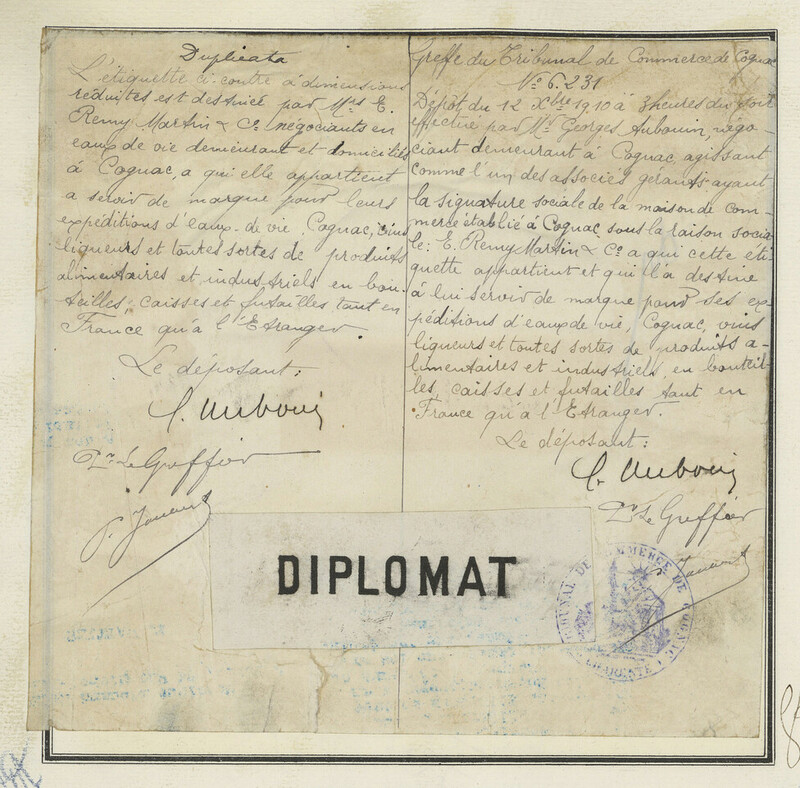 Duplicata
L'étiquette ci-contre à dimensions
réduites est destinée par Mrs E.
Remy Martin & Co négociants en
eaux de vie demeurant et domiciliés
à Cognac, a qui elle appartient
a servir de marque pour leurs
expéditions d'eaux-de-vie, Cognac, vins
liqueurs et toutes sortes de produits
alimentaires et industriels en bou-
teilles, caisses et futailles tant en
France qu'à l'Etranger.
Le déposant:
G. Aubouin
Pr Le Greffier
Greffe du Tribunal de Commerce de Cognac
No 6.231
Dépôt du 12 Xbre 1910 à 3 heures du soir
effectué par Mr Georges Aubouin, négo-
ciant demeurant à Cognac, agissant
comme l'un des associés gérants ayant
la signature sociale de la maison de com-
merce établie à Cognac sous la raison socia-
le: E. Remy Martin & Co a qui cette éti-
quette appartient et qui l'a destine
à lui servir de marque pour ses ex-
péditions d'eaux de vie, Cognac, vins
liqueurs et toutes sortes de produits a-
limentaires et industriels en bouteil-
les, caisses et futailles tant en
France qu'à l'Etranger.
Le déposant:
G. Aubouin
Pr Le Greffier
DIPLOMAT
TRIBUNAL DE COMMERCE DE COGNAC
CHARENTE